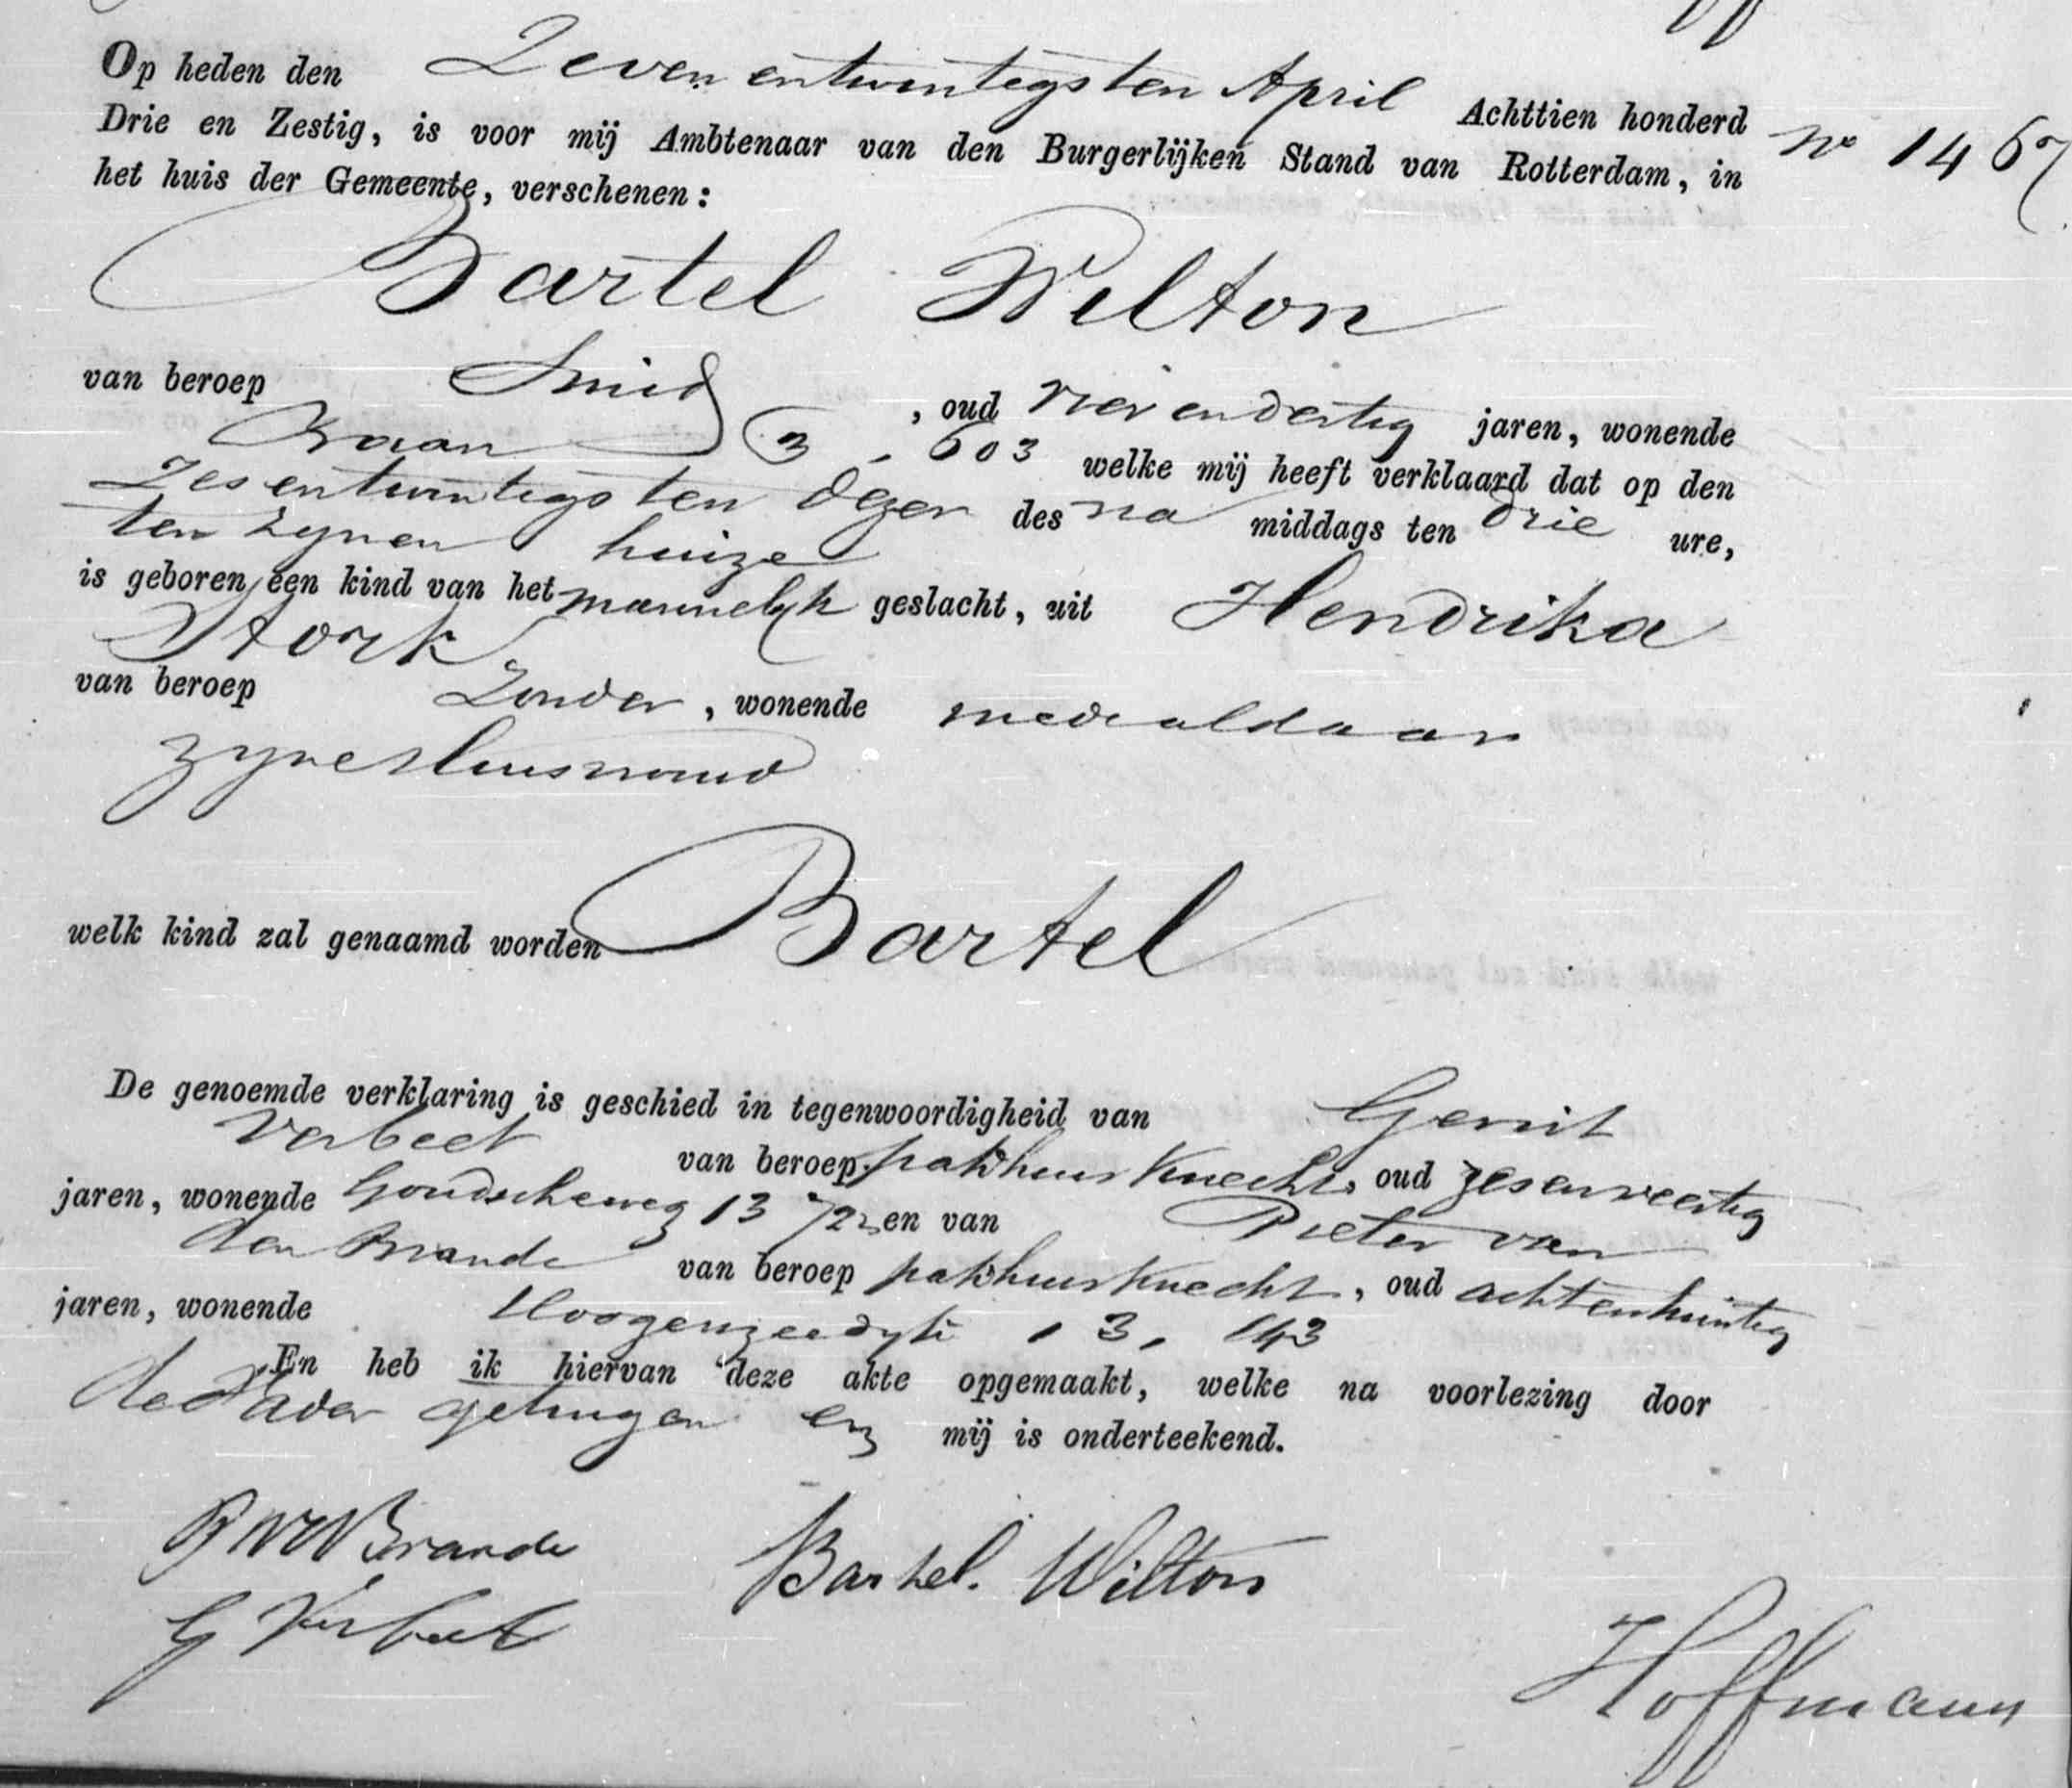 Op heden den Zeven entwintigsten April Achttien honderd
Drie en Zestig, is voor mij Ambtenaar van den Burgerlijken Stand van Rotterdam, in
No 1467
het huis der Gemeente, verschenen:
Bartel Wilton
van beroep Smid, oud vier en dertig jaren, wonende
Baan 3 603 welke mij heeft verklaard dat op den
Zes entwintigsten dezer des na middags ten drie ure,
ten zynen huize
is geboren een kind van het mannelyk geslacht, uit Hendrika
Stork
van beroep Zonder, wonende mede aldaar
zyne Huisvrouw
welk kind zal genaamd worden Bartel
De genoemde verklaring is geschied in tegenwoordigheid van Gerrit
Verbeet van beroep pakhuis Knecht, oud zesenveertig
jaren, wonende Goudscheweg 13 en van Pieter van
den Brande van beroep pakhuisknecht, oud achtentwintig
jaren, wonende Hoogenzeedyk 13, 143
En heb ik hiervan deze akte opgemaakt, welke na voorlezing door
de Vader getuigen en mij is onderteekend.
Brande Bartel. Wilton
G Verbeet
Hoffmann